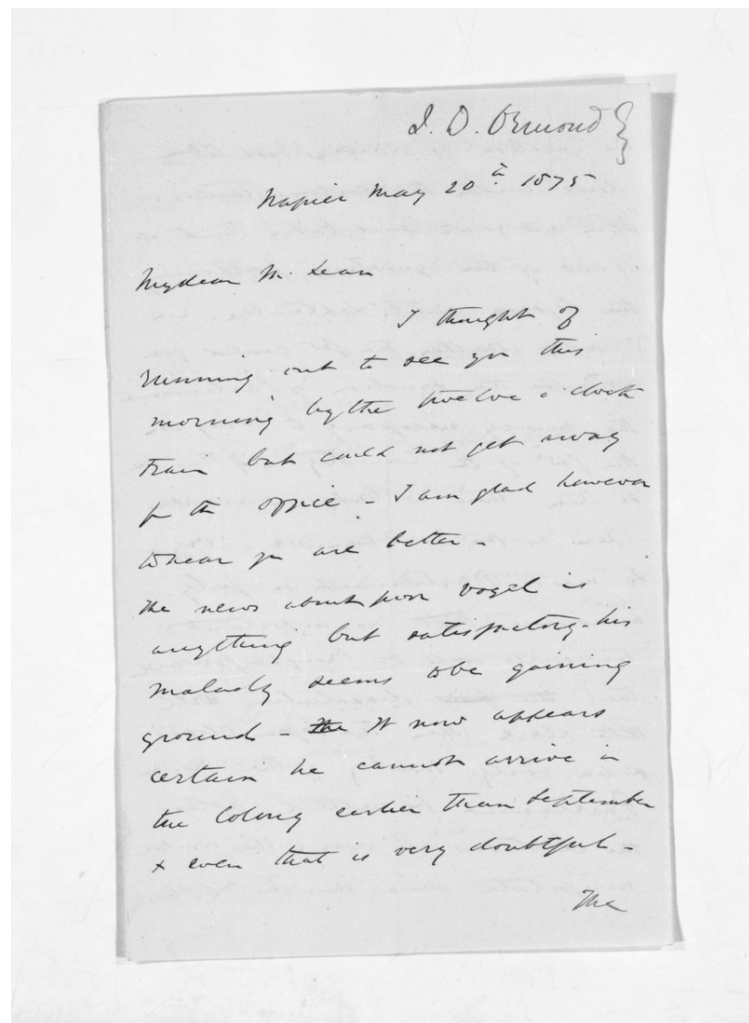 J. D. Ormond
Napier May 20th 1875
My dear McLean
I thought of
running out to see you this
morning by the twelve o'clock
train but could not get away
fr the office - I am glad however
to hear you are better -
The news about poor Vogel is
anything but satisfactory - his
malady seems to be gaining
ground - The It now appears
certain he cannot arrive in
the Colony earlier than September
& even that is very doubtful -
The